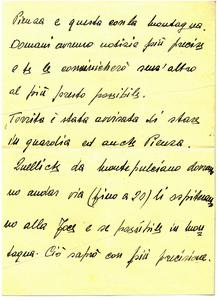 Pienza e questa con la montagna.
Domani avremo notizie più precise
e te le comunicherò senz'altro
al più presto possibile.
Torrita è stata avvisata di stare
in guardia ed anche Pienza.
Quelli da Montepulciano dovran
no andar via (fino a 20) li ospiteran
no alla Foce e se possibile in mon
tagna. Ciò saprò con più precisione.